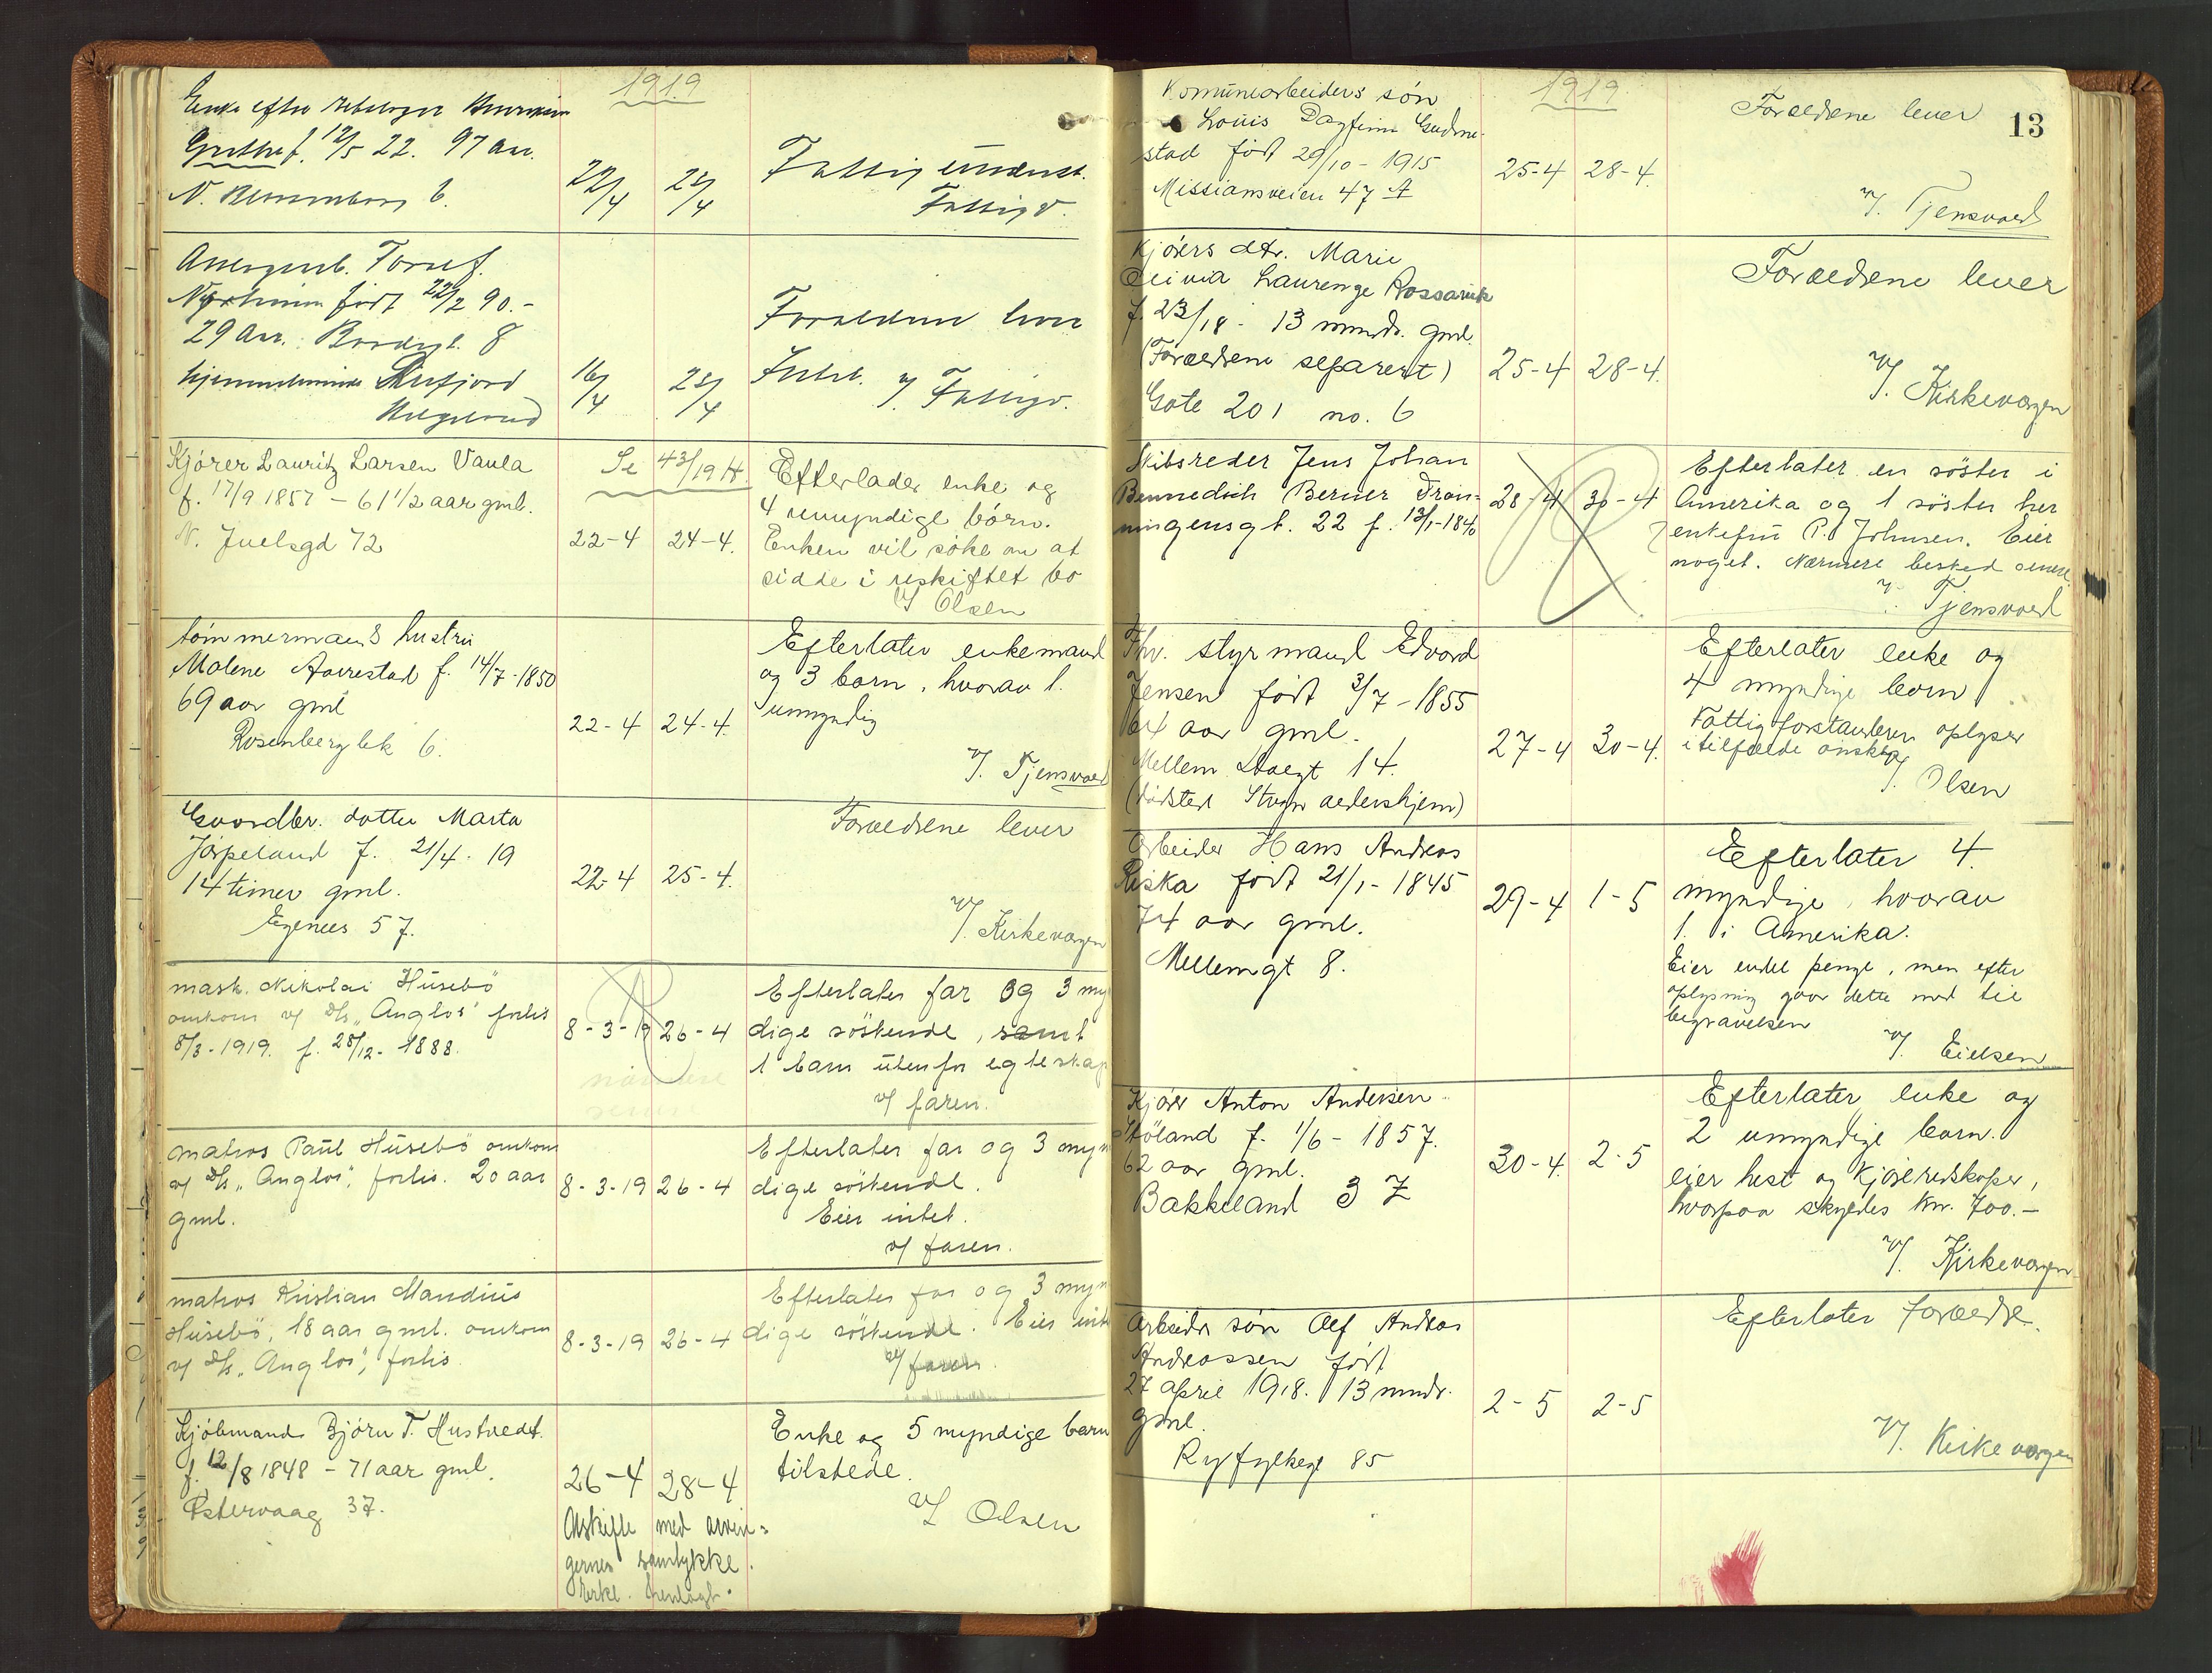 1919
Enke efter
Grethe f. 12/5 22. 97 aar.
N. 6.
22/4 25/4
Fattig underst.
Fattigv.
født 22/2 90.-
29 aar. 8
hjemmehørende
16/4 25/4
Forældrene lever
Intet. v/ Fattigv.
Kjörer Lauritz Larsen Vaula
f. 17/9 1857 – 61 1/2 aar gml.
N. Juelsgd 72
Se 43/19 H.
22-4 24-4.
Efterlader enke og
4 umyndige börn.
Enken vil söke om at
sidde i uskiftet bo
v/ Olsen
tömmermands hustru
Malene Aarrestad f. 14/7-1850
69 aar gml
Rosenberg bk 6.
22-4 24-4.
Efterlater enkemand
og 3 barn, hvorav 1.
umyndig
v/. Tjensvoll
Gaardbr. datter Marta
Jörpeland f. 21/4-19
14 timer gml.
Egenes 57.
22-4 25-4.
Forældrene lever
v/. Kirkevergen
mask. Nikolai Húsebö
omkom v/ D/s "Anglos" forlis
8/3-1919. f. 28/12-1888.
8-3-19 26-4
nærmere
senere
Efterlater far og 3 myn
dige söskende, samt
1 barn utenfor egteskap
v/ faren.
matros Paúl Húsebö omkom
v/ D/s "Anglos", forlis. 20 aar
gml.
8-3-19 26-4
Efterlater far og 3 myn
dige söskende.
Eier intet.
v/ faren.
matros Kristian Mandius
Húsebö, 18 aar gml. omkom
v/ D/s "Anglos", forlis.
8-3-19 26-4
Efterlater far og 3 myn
dige söskende. Eier intet
v/ faren.
Kjöbmand Björn T. Hustvedt.
f. 12/8 1848 – 71 aar gml.
Østervaag 37.
26-4 28-4
Utskifte med arvin-
gernes samtykke.
Erkl. henlagt.
Enke og 5 myndige barn
tilstede.
v/ Olsen
13
1919
Komúnearbeiders sön
Louis Dagfinn Gudme-
stad född 29/10-1915
Missionsveien 47 A
25-4 28-4.
Forældrene lever
v/. Tjensvoll
Kjörers dtr. Marie
Laurenze Rossavik
f. 23/18- 13 mndr. gml.
(Forældrene separert)
Gate 201 no. 6
25-4 28-4.
Forældrene lever
v/. Kirkevergen
Skibsreder Jens Johan
Bennedich Berner Tran-
ningensgt. 22 f. 13/1-1840
28-4 30-4
Efterlater en söster i
Amerika og 1 söster her
enkefrú P. Johnsen. Eier
noget. Nærmere besked senere.
v/. Tjensvoll
Fhv. styrmand Edvard
Jensen född 3/7-1855
64 aar gml.
Mellem Straegt 14.
(dödsted Stvgr aldershjem)
27-4 30-4.
Efterlater enke og
4 myndige barn
Fattigforstanderen oplyser
i tilfælde önskes
v/. Olsen
Arbeider Hans Andreas
Riska född 21/1-1845
74 aar gml.
Mellemgt 8.
29-4 1-5
Efterlater 4
myndige, hvorav
1. i Amerika.
Eier endel penge, men efter
oplysning gaar dette med til
begravelsen
v/. Eielsen
Kjörer Anton Andersen
Stöland f. 1/6-1857.
62 aar gml.
Bakkeland 37
30-4. 2-5
Efterlater enke og
2 umyndige barn.
eier hest og kjöreredskaper,
hvorpaa skyldes kr. 700.–
v/. Kirkevergen
Arbeider sön Alf Andreas
Andreassen född
27 april 1918. 13 mndr.
gml.
Ryfylkegt 85
2-5 2-5
Efterlater forældre.
v/. Kirkevergen